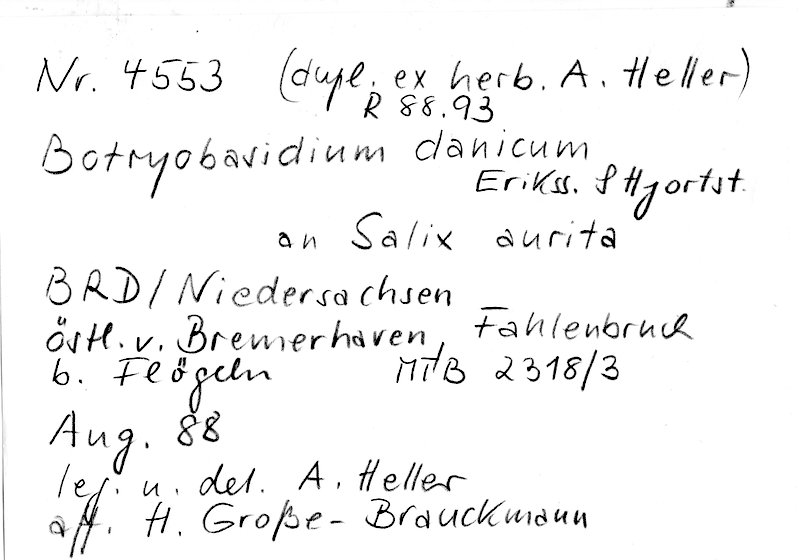 Nr. 4553 (dupl. ex herb. A. Heller)
R 88.93
Botryobasidium danicum
Erikss. & Hjortst.
an Salix aurita
BRD/Niedersachsen
östl. v. Bremerhaven, Fahlenbruch
b. Flögeln MTB 2318/3
Aug. 88
leg. u. det. A. Heller
aff. H. Große-Brauckmann